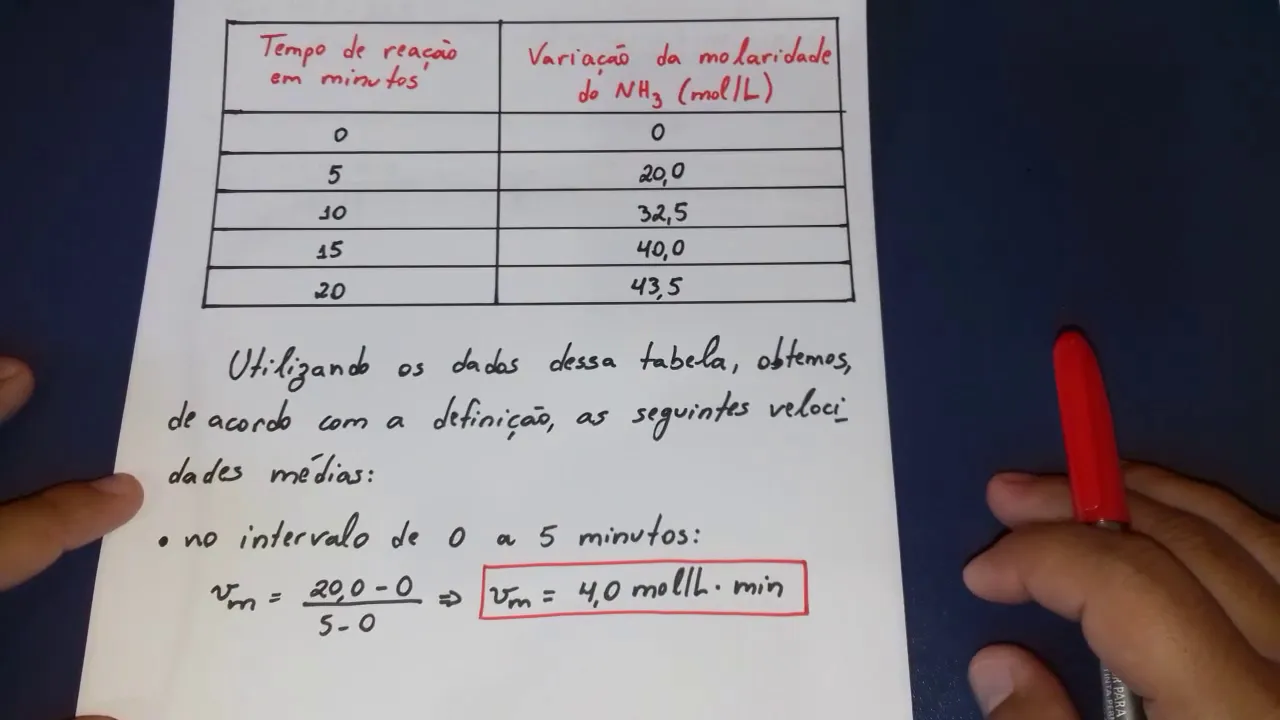 Tempo de reação
em minutos
Variação da molaridade
do NH3 (mol/L)
0 0
5 20,0
10 32,5
15 40,0
20 43,5
Utilizando os dados dessa tabela, obtemos,
de acordo com a definição, as seguintes veloci-
dades médias:
• no intervalo de 0 a 5 minutos:
vm = 20,0 - 0 / 5 - 0 ⇒ vm = 4,0 mol/L · min
PARA